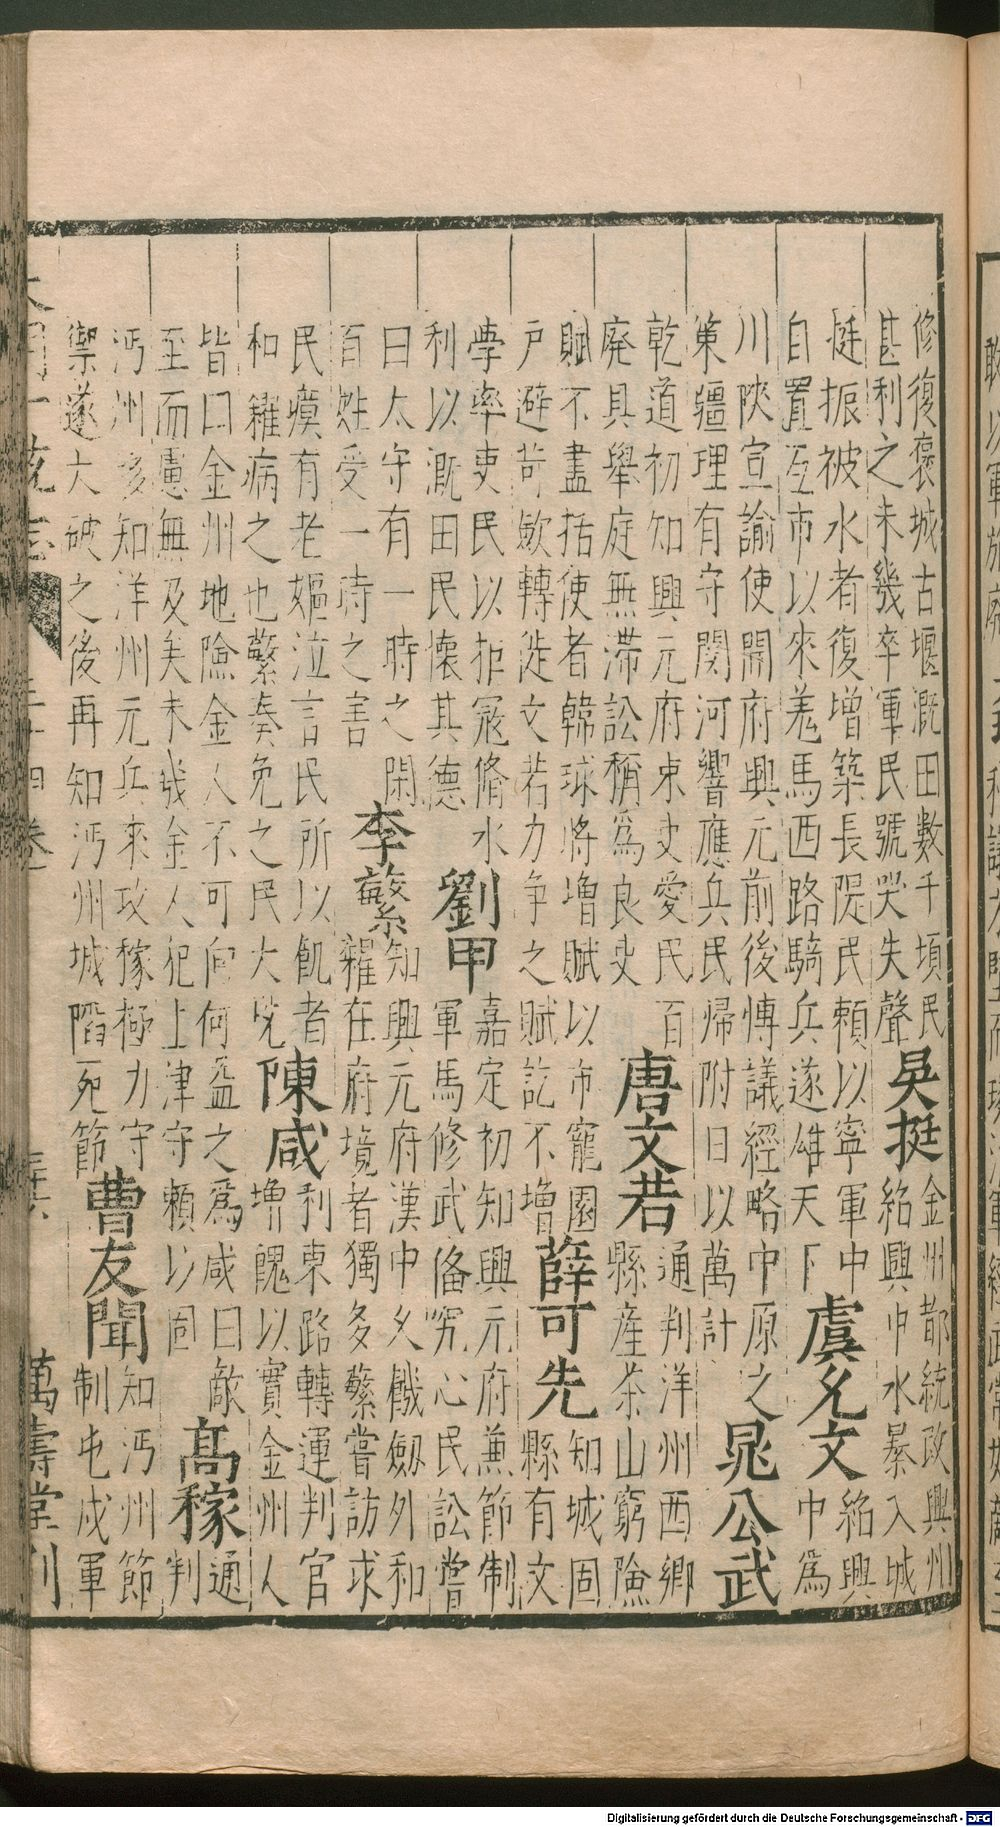 修復褒城古堰溉田數千頃民
甚利之未幾卒軍民號哭失聲
吳挺
金州都統政興州
紹興中水暴入城
挺振被水者復增築長隄民賴以寧軍中
自置互市以來羗馬西路騎兵遂雄天下
虞允文
紹興
中為
川陝宣諭使開府興元前後慱議經略中原之
策疆理有守関河響應兵民歸附日以萬計
晁公武
乾道初知興元府束吏愛民百
廢具舉庭無滯訟稱為良吏
唐文若
通判洋州西鄉
縣產茶山窮險
賦不盡括使者韓球將增賦以市寵園
戶避苛歛轉徙文若力争之賦訖不增
薛可先
知城固
縣有文
學率吏民以拒冦脩水
利以溉田民懷其德
劉甲
嘉定初知興元府兼節制
軍馬修武俻究心民訟嘗
曰太守有一時之閑
百姓受一時之害
李蘩
知興元府漢中久饑劔外和
糴在府境者獨多蘩嘗訪求
民瘼有老嫗泣言民所以飢者
和糴病之也蘩奏免之民大恱
陳咸
利東路轉運判官
增餽以實金州人
皆曰金州地險金人不可向何益之為咸曰敵
至而慮無及矣未㡬金人犯上津守賴以固
高稼
通
判
沔州多知洋州元兵來攻稼極力守
禦遂大破之後再知沔州城陷死節
曹友聞
知沔州節
制屯戍軍
萬壽堂刊
Digitalisierung gefördert durch die Deutsche Forschungsgemeinschaft - DFG